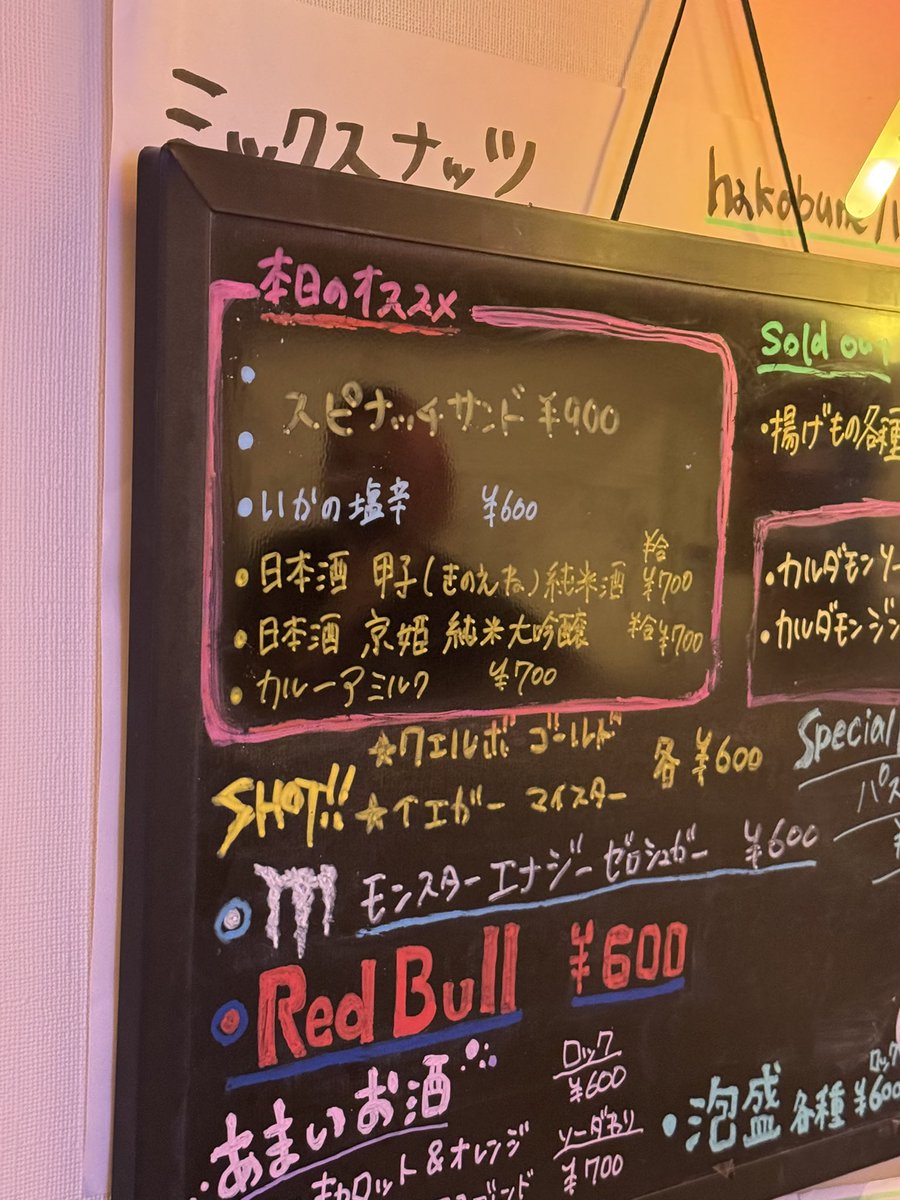 ミックスナッツ
hakobune
本日のオススメ
スピナッチサンド ¥900
・いかの塩辛 ¥600
・日本酒 甲子(きのえね)純米酒 半合 ¥700
・日本酒 京姫 純米大吟醸 半合 ¥700
・カルーアミルク ¥700
SHOT!!
☆クエルボ ゴールド
☆イエガー マイスター
各 ¥600
・モンスターエナジーゼロシュガー ¥600
・Red Bull ¥600
あまいお酒
ロック
¥600
ソーダわり
¥700
キャロット&オレンジ
Sold out
・揚げもの各種
・カルダモンソー
・カルダモンジン
Special
パス
・泡盛 各種 ロック ¥600